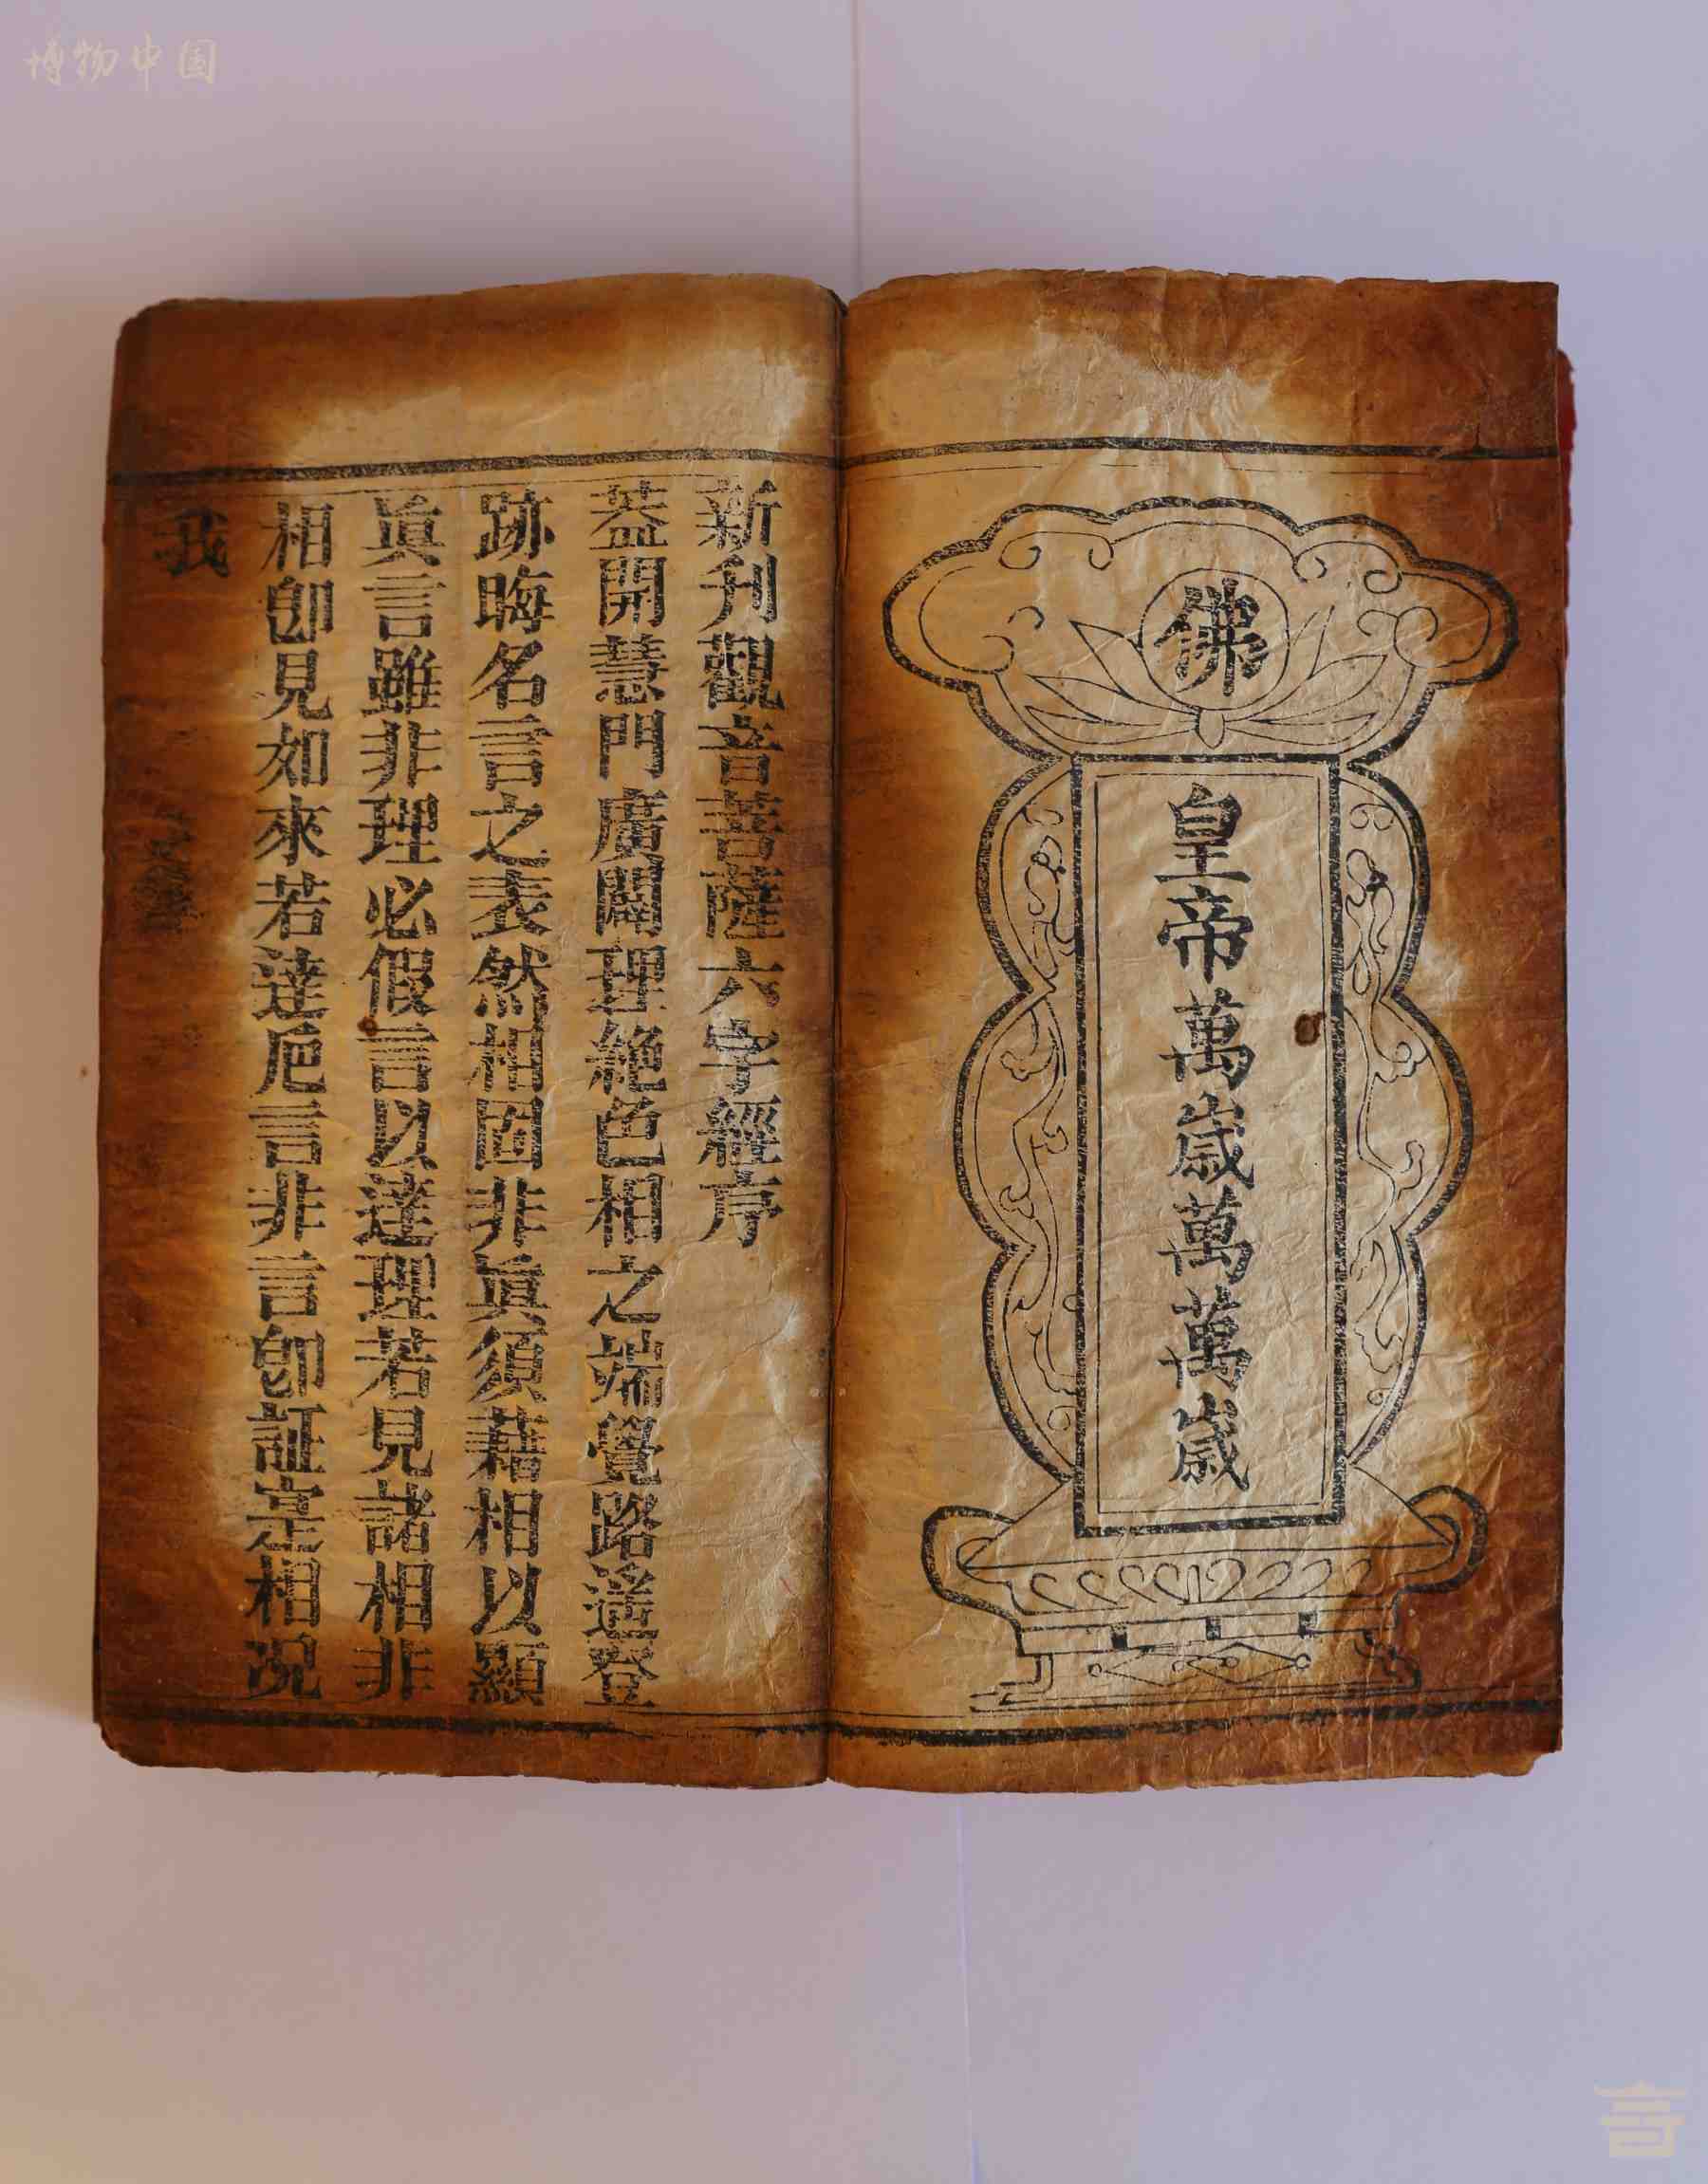 博物中国
佛
皇帝萬歲萬萬歲
新刋觀音菩薩六字經序
葢開慧門廣闢理絶色相之端覺路遥登
跡晦名言之表然相固非眞須藉相以顯
眞言雖非理必假言以達理若見諸相非
相卽見如來若達巵言非言卽証寔相況
我